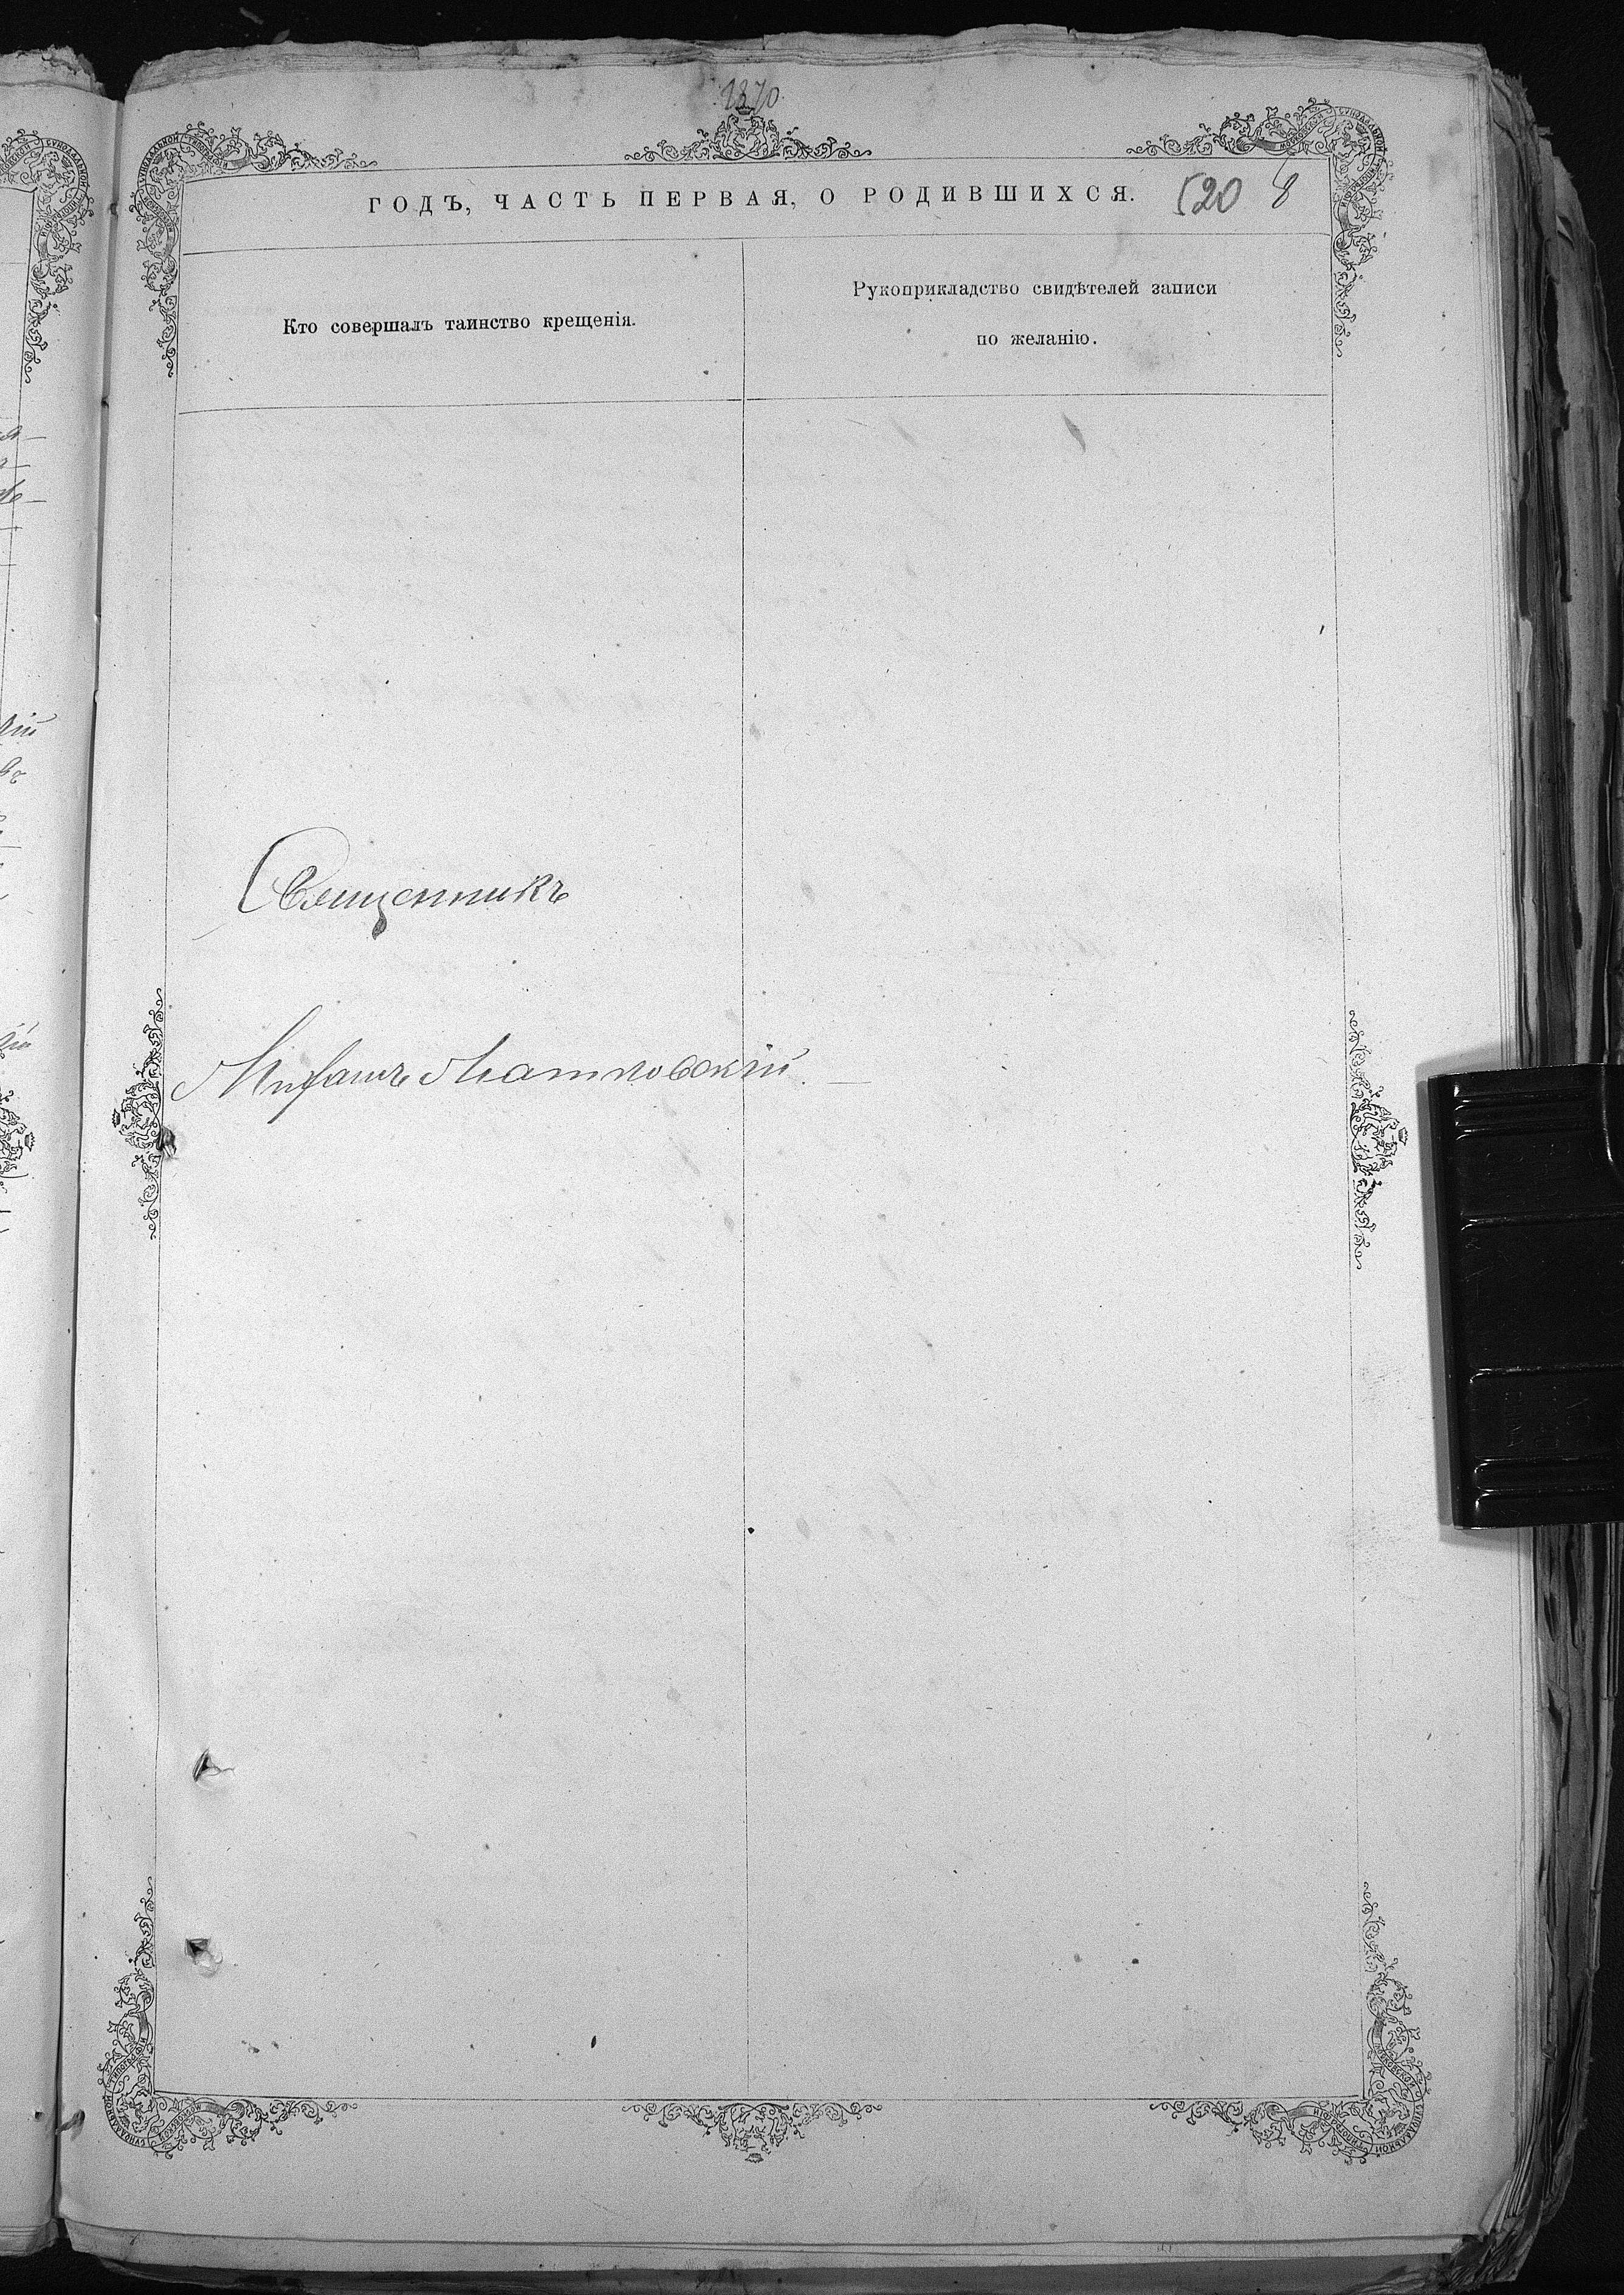 1870
ГОДЪ, ЧАСТЬ ПЕРВАЯ, О РОДИВШИХСЯ.
520 8
Кто совершалъ таинство крещенія.
Рукоприкладство свидѣтелей записи
по желанію.
Священникъ